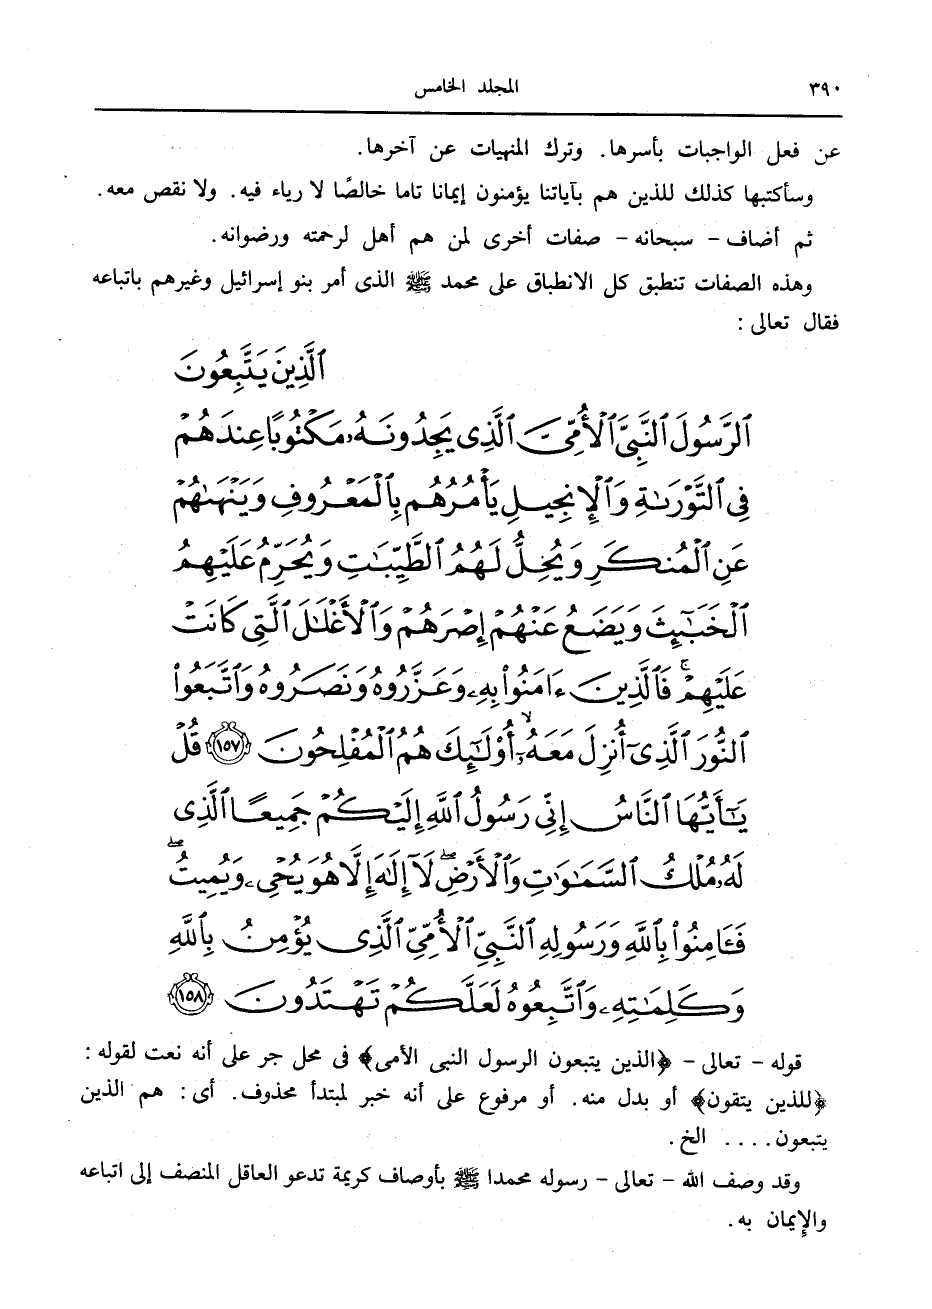 ٣٩٠ المجلد الخامس
عن فعل الواجبات بأسرها. وترك المنهيات عن آخرها.
وسأكتبها كذلك للذين هم بآياتنا يؤمنون إيمانا تاما خالصًا لا رياء فيه. ولا نقص معه.
ثم أضاف - سبحانه - صفات أخرى لمن هم أهل لرحمته ورضوانه.
وهذه الصفات تنطبق كل الانطباق على محمد ﷺ الذى أمر بنو إسرائيل وغيرهم باتباعه
فقال تعالى :
ٱلَّذِينَ يَتَّبِعُونَ
ٱلرَّسُولَ ٱلنَّبِىَّ ٱلْأُمِّىَّ ٱلَّذِى يَجِدُونَهُۥ مَكْتُوبًا عِندَهُمْ
فِى ٱلتَّوْرَىٰةِ وَٱلْإِنجِيلِ يَأْمُرُهُم بِٱلْمَعْرُوفِ وَيَنْهَىٰهُمْ
عَنِ ٱلْمُنكَرِ وَيُحِلُّ لَهُمُ ٱلطَّيِّبَٰتِ وَيُحَرِّمُ عَلَيْهِمُ
ٱلْخَبَٰٓئِثَ وَيَضَعُ عَنْهُمْ إِصْرَهُمْ وَٱلْأَغْلَٰلَ ٱلَّتِى كَانَتْ
عَلَيْهِمْ ۚ فَٱلَّذِينَ ءَامَنُوا۟ بِهِۦ وَعَزَّرُوهُ وَنَصَرُوهُ وَٱتَّبَعُوا۟
ٱلنُّورَ ٱلَّذِىٓ أُنزِلَ مَعَهُۥٓ ۙ أُو۟لَٰٓئِكَ هُمُ ٱلْمُفْلِحُونَ ١٥٧ قُلْ
يَٰٓأَيُّهَا ٱلنَّاسُ إِنِّى رَسُولُ ٱللَّهِ إِلَيْكُمْ جَمِيعًا ٱلَّذِى
لَهُۥ مُلْكُ ٱلسَّمَٰوَٰتِ وَٱلْأَرْضِ ۖ لَآ إِلَٰهَ إِلَّا هُوَ يُحْىِۦ وَيُمِيتُ ۖ
فَـَٔامِنُوا۟ بِٱللَّهِ وَرَسُولِهِ ٱلنَّبِىِّ ٱلْأُمِّىِّ ٱلَّذِى يُؤْمِنُ بِٱللَّهِ
وَكَلِمَٰتِهِۦ وَٱتَّبِعُوهُ لَعَلَّكُمْ تَهْتَدُونَ ١٥٨
قوله - تعالى - ﴿الذين يتبعون الرسول النبى الأمى﴾ فى محل جر على أنه نعت لقوله :
﴿للذين يتقون﴾ أو بدل منه. أو مرفوع على أنه خبر لمبتدأ محذوف. أى : هم الذين
يتبعون.... الخ.
وقد وصف الله - تعالى - رسوله محمدا ﷺ بأوصاف كريمة تدعو العاقل المنصف إلى اتباعه
والإيمان به.